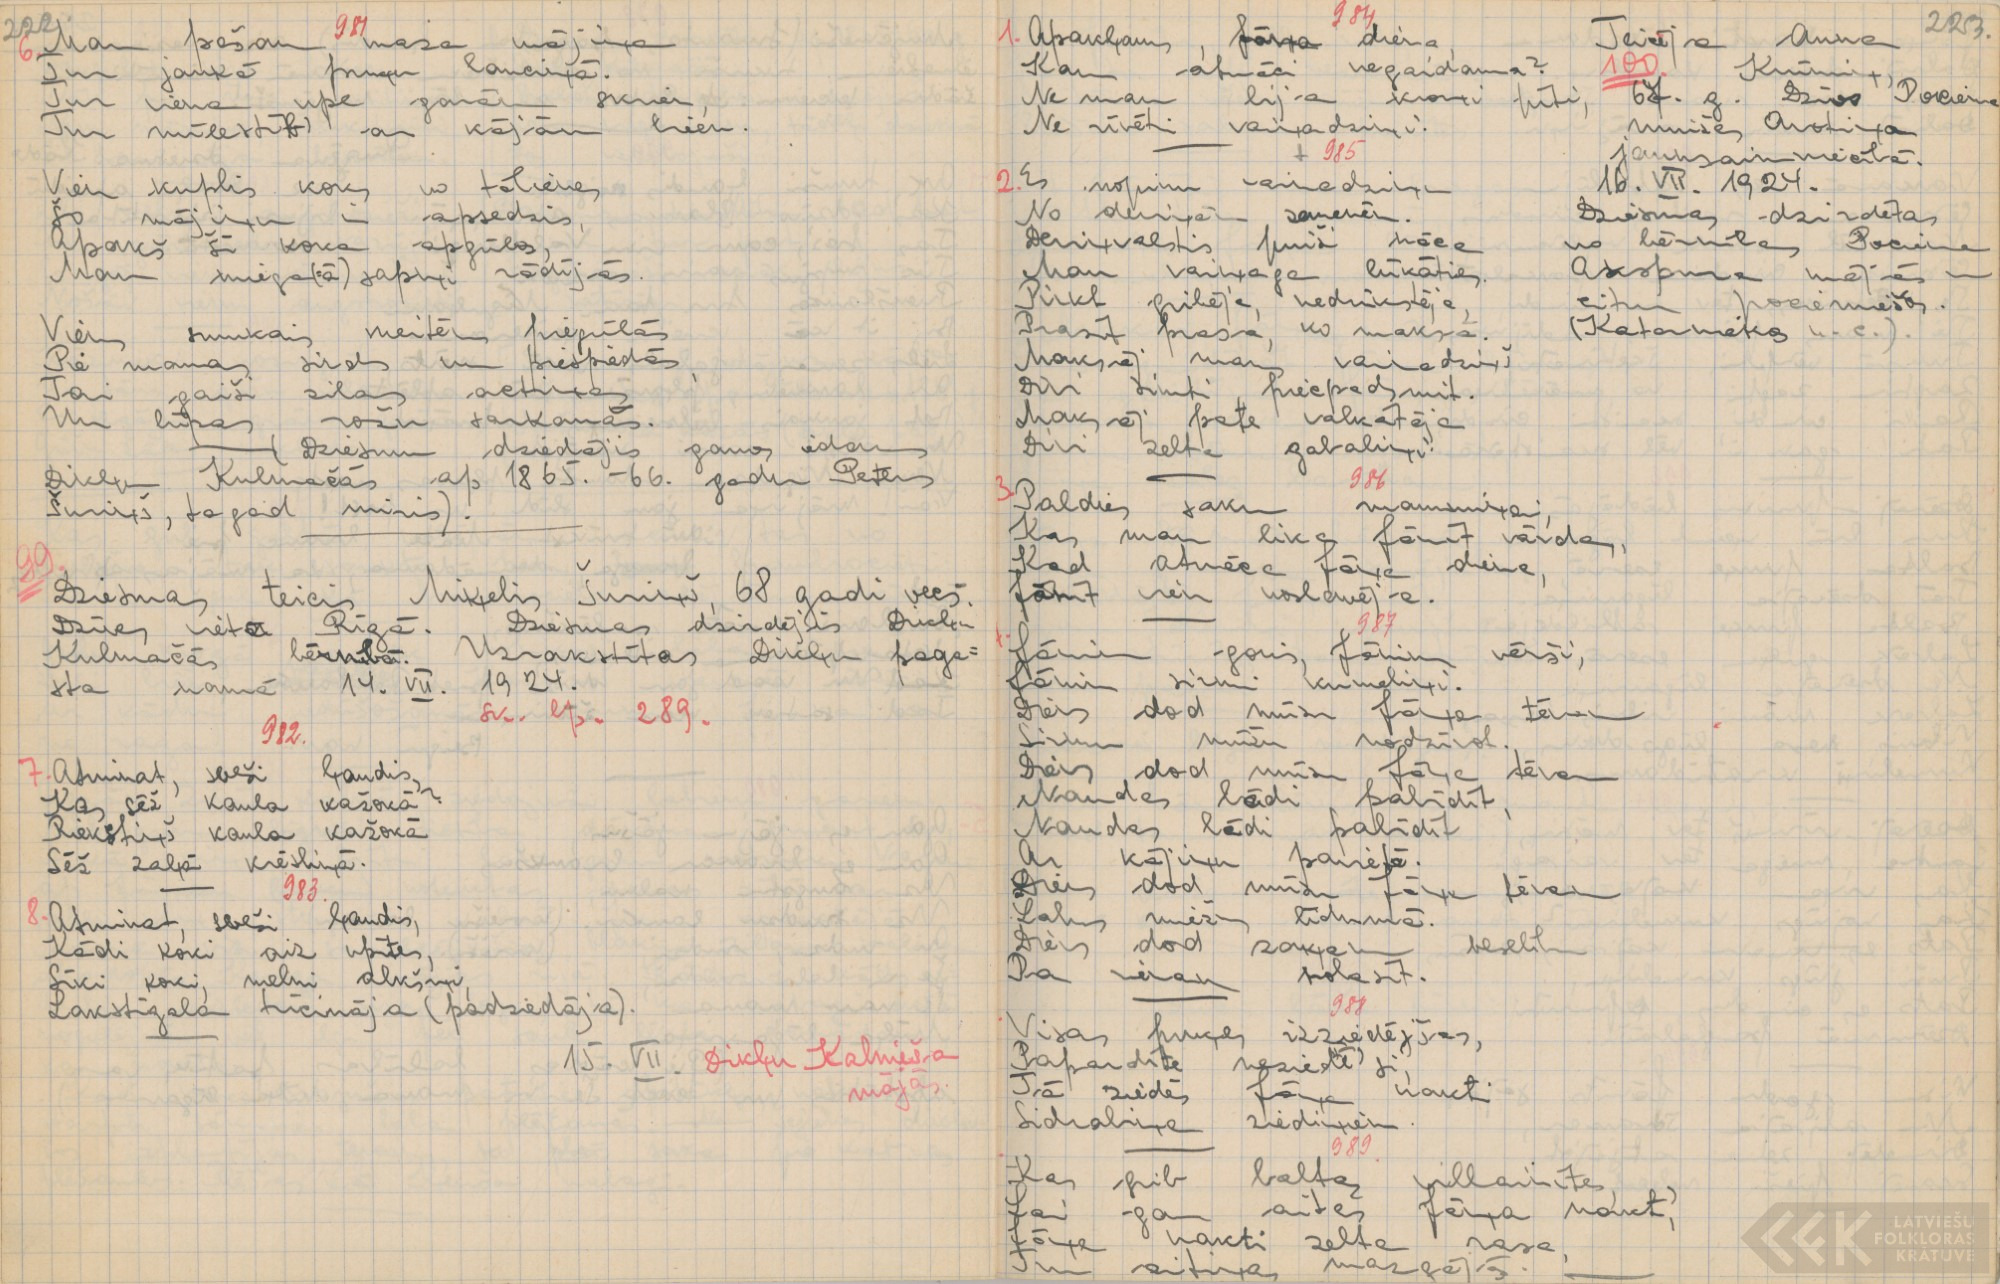 222.
981
6. Man pašam maza mājiņa
Tur jaukā puķu lanciņā.
Tur viena upe garām skrien,
Tur mīlestīb' ar kājām brien.
Viens kuplis koks no tālienes
Šo mājiņu ir apsedzis,
Apakš šī koka apgūlos,
Man miega(:ā) sapņi rādījās.
Viens smukais meitēns piegūlās
Pie manas sirds un piespiedās,
Tai gaiši zilas actiņas
Un lūpas rožu sarkanās.
(Dziesmu dziedājis ganos iedams
Dikļu Kulmačās ap 1865.-66. gadu Peters
Šuriņš, tagad miris).
99.
Dziesmas teicis Miķelis Šuriņš, 68 gadi vecs.
Dzīves vieta Rīgā. Dziesmas dzirdējis Dikļu
Kulmačās bērnībā. Uzrakstītas Dikļu paga=
sta namā 14. VII. 1924.
sk. lp. 289.
982.
7. Atminat, sveši ļaudis,
Kas sēž kaula kažokā?
Riekstiņš kaula kažokā
Sēž zaļā krēsliņā.
983.
8. Atminat, sveši ļaudis,
Kādi koki aiz upītes,
Sīki koki, melni alkšņi,
Lakstīgala tricināja (padziedāja).
15. VII. Dikļu Kalnieša
mājās.
223.
984
1. Apaļļams, Jāņa diena,
Kam atnāci negaidama?
Ne man bija kroņi pīti,
Ne rīvēti vaiņadziņi.
+ 985
2. Es nopinu vainadziņu
No deviņām zemenēm.
Deviņvalstis puiši nāca
Man vaiņaga lūkāties.
Pirkt gribēja, nedrīkstēja,
Prasīt prasa, ko maksā.
Maksāj mans vainadziņš
Divi simti piecpadsmit.
Maksāj pate valkātāja
Divi zelta gabaliņi.
986
3. Paldies saku mammiņai,
Kas man lika Jānīt vārdu,
Kad atnāca Jāņa diena,
Jānīt vien noslavēja.
987
4. Jānim govis, Jānim vērši,
Jānim sirmi kumeliņi.
Dievs dod mūsu Jāņa tēvam
Sirmu mūžu nodzīvot.
Dievs dod mūsu Jāņa tēvam
Naudas lādi pabīdīt,
Naudas lādi pabīdīt
Ar kājiņu pavējā.
Dievs dod mūsu Jāņa tēvam
Labus miežus līdumā.
Dievs dod zaķam veselīb
Pa vienam nolasīt.
988
Visas puķes izziedējšas,
Papardīte neziedē' si,
Tā ziedēs Jāņa nakti
Sidrabiņa ziediņiem.
989.
Kas grib baltas villainītes,
Lai gan aitas Jāņa nakt',
Jāņa nakti zelta rasa,
Tur aitiņas mazgājās.
Teicēja Anna
100. Krūmiņ,
67. g. Dzīvo Pociema
muižas Avotiņa
jaunsaimniecībā.
16. VII. 1924.
Dziesmas dzirdētas
no bērnības Pociema
Akspura mājās un
citur pociemiešos.
(Katarniekos u. c.).
LATVIEŠU
FOLKLORAS
KRĀTUVE